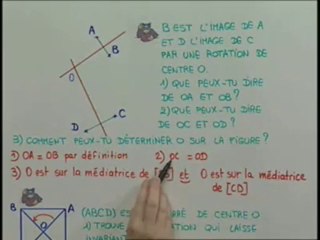 B EST L'IMAGE DE A
ET D L'IMAGE DE C
PAR UNE ROTATION DE
CENTRE O.
1) QUE PEUX-TU DIRE
DE OA ET OB?
2) QUE PEUX-TU DIRE
DE OC ET OD?
A
B
O
C
D
3) COMMENT PEUX-TU DÉTERMINER O SUR LA FIGURE?
1) OA = OB par définition 2) OC = OD
3) O est sur la médiatrice de et O est sur la médiatrice
de [CD]
B A
O
(ABCD) CARRÉ DE CENTRE O
1) TROUVE ROTATION QUI LAISSE